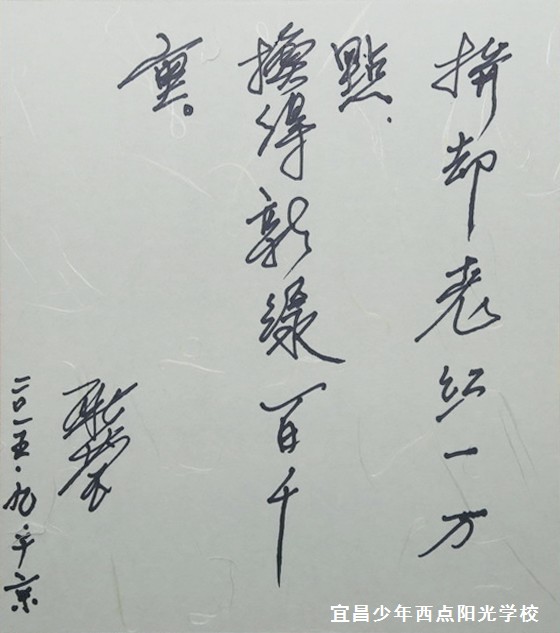 拚却老红一万
點、
換得新綠百千
重。
耿莹
二〇一五·九·于京
宜昌少年西点阳光学校